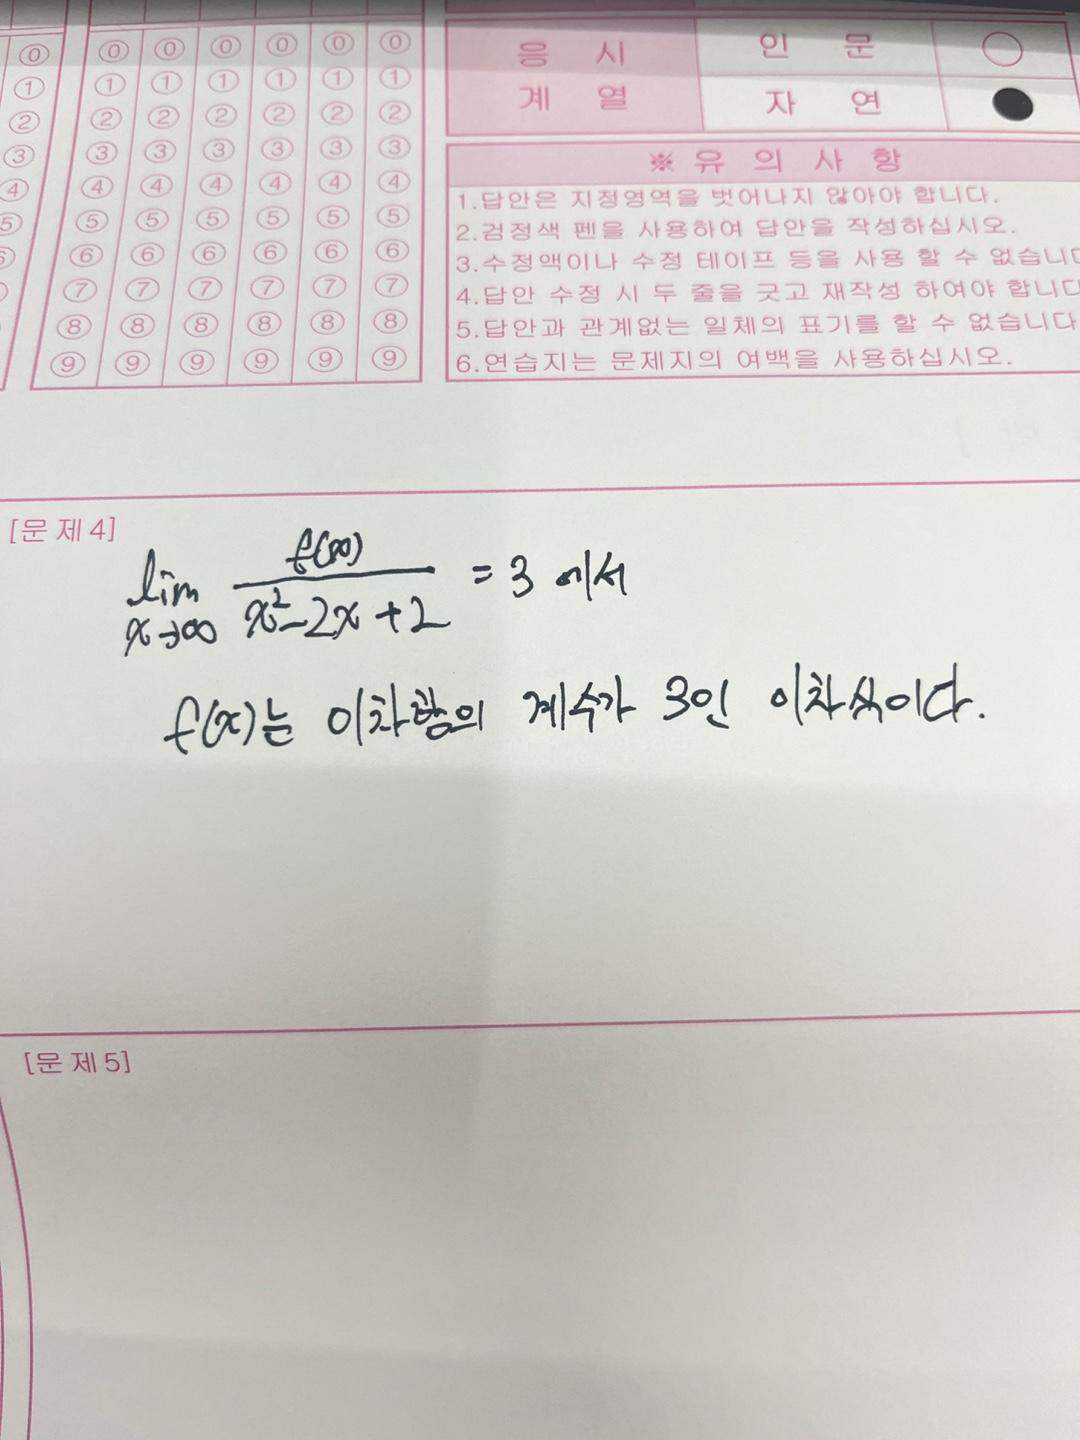 ⓪ ⓪ ⓪ ⓪ ⓪ ⓪ ⓪
① ① ① ① ① ① ①
② ② ② ② ② ② ②
③ ③ ③ ③ ③ ③ ③
④ ④ ④ ④ ④ ④ ④
⑤ ⑤ ⑤ ⑤ ⑤ ⑤ ⑤
⑥ ⑥ ⑥ ⑥ ⑥ ⑥ ⑥
⑦ ⑦ ⑦ ⑦ ⑦ ⑦
⑧ ⑧ ⑧ ⑧ ⑧ ⑧
⑨ ⑨ ⑨ ⑨ ⑨ ⑨
응 시 인 문
계 열 자 연
※ 유 의 사 항
1.답안은 지정영역을 벗어나지 않아야 합니다.
2.검정색 펜을 사용하여 답안을 작성하십시오.
3.수정액이나 수정 테이프 등을 사용 할 수 없습니다
4.답안 수정 시 두 줄을 긋고 재작성 하여야 합니다
5.답안과 관계없는 일체의 표기를 할 수 없습니다
6.연습지는 문제지의 여백을 사용하십시오.
[문 제 4]
lim x→∞ f(x)/(x²-2x+2) = 3 에서
f(x)는 이차항의 계수가 3인 이차식이다.
[문 제 5]